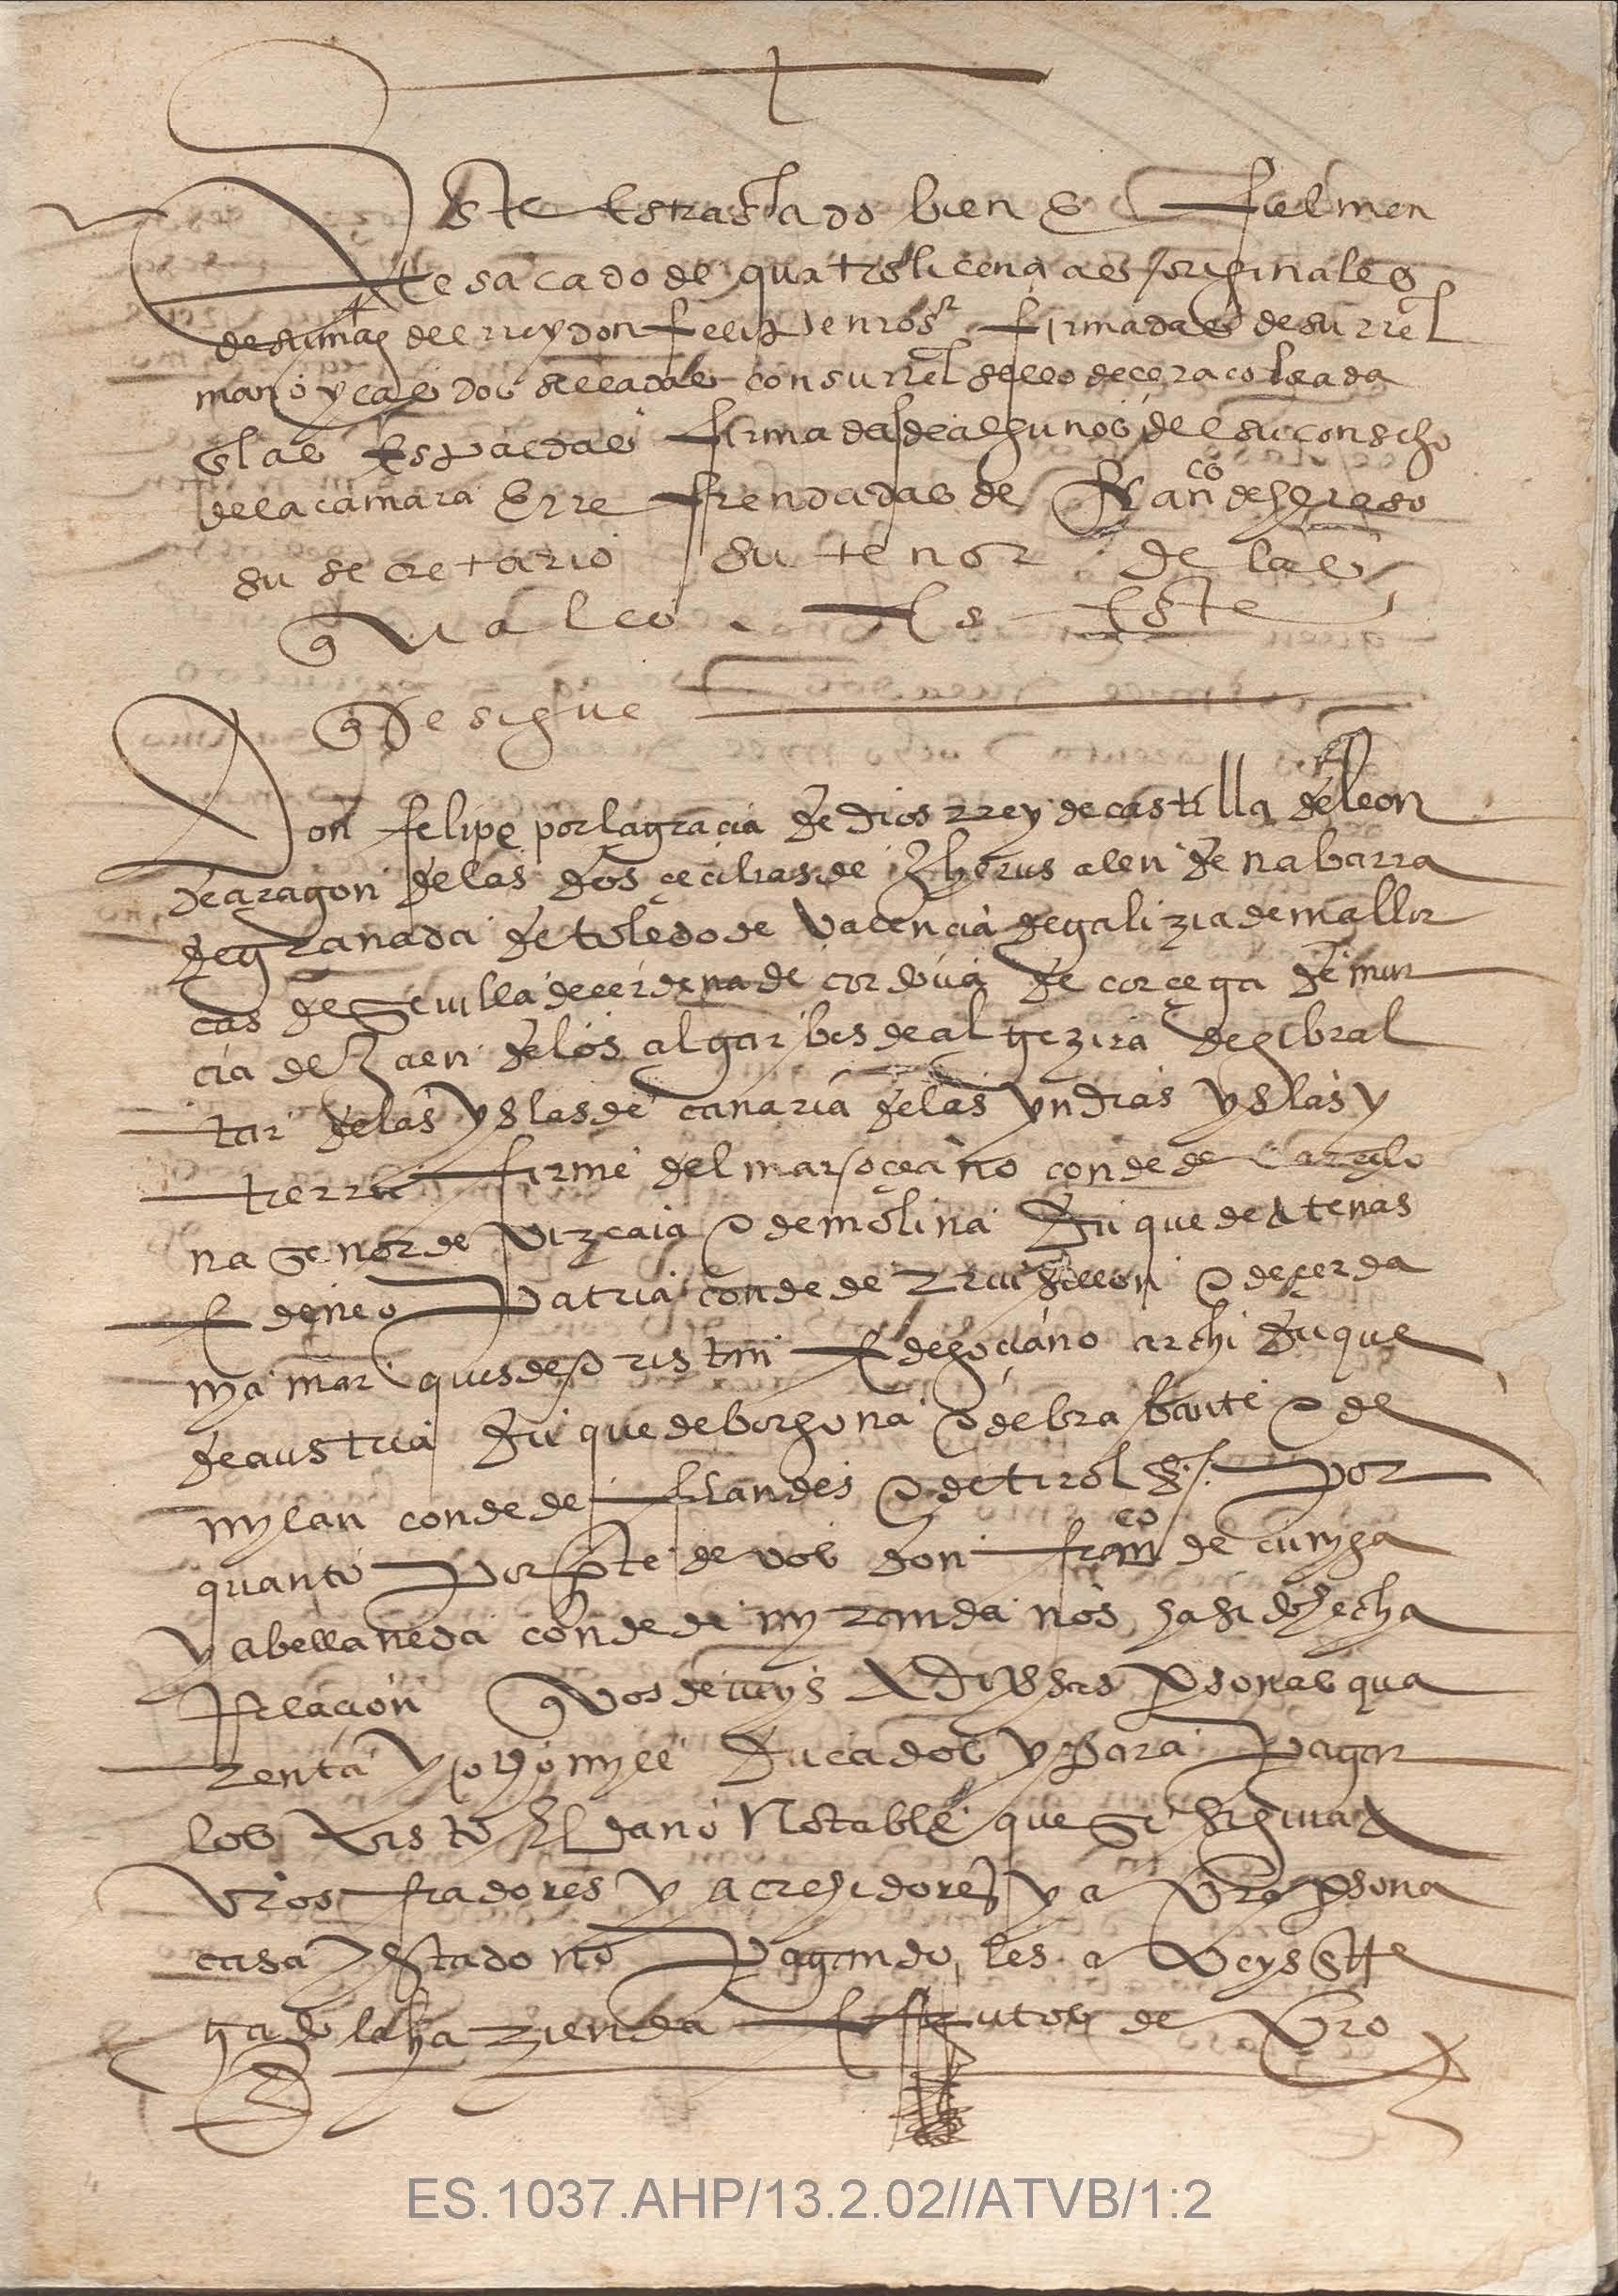 Este es traslado bien e fielmen
te sacado de quatro licencias originales
de su mag del rrey don felipe nro sr firmadas de su rreal
mano y las dos selladas con su rreal sello de cera colorada
a las espaldas firmadas de algunos del su consejo
de la camara e rrefrendadas de franco de heraso
su secretario su tenor de las
quales es este
que se sigue
Don felipe por la gracia de dios rrey de castilla de leon
de aragon de las dos çeçilias de Jherusalen de nabarra
de granada de toledo de valencia de galizia de mallor
cas de sevilla de cerdena de cordova de corçega de mur
cia de Jaen de los algarbes de algezira de gibral
tar de las yslas de canaria de las yndias yslas y
tierra firme del mar oçeano conde de barcelo
na señor de vizcaia e de molina duque de atenas
e de neopatria conde de rruisellon e de çerda
nya marques de oristan e de goçiano archiduque
de austria duque de borgoña e de brabante e de
mylan conde de flandes e de tirol &. por
quanto por pte de vos don franco de cunyga
y abellaneda conde de myranda nos ha sido hecha
rrelacion que vos deveys a dibersas psonas qua
renta y ocho myll ducados y para pagar
los visto el dano notable que se siguia a
vros fiadores y acrehedores y a vra psona
casa y estado no pagandoles aveys
gado la hazienda e frutos de vro
ES.1037.AHP/13.2.02//ATVB/1:2